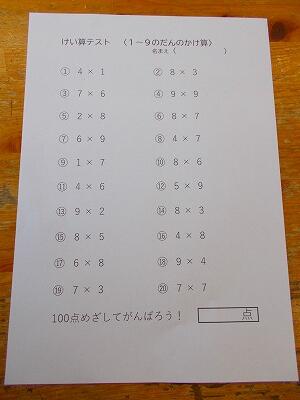 けい算テスト　〈1～9のだんのかけ算〉
名まえ（　　　　　　）
① 4 × 1　② 8 × 3
③ 7 × 6　④ 9 × 9
⑤ 2 × 8　⑥ 8 × 7
⑦ 6 × 9　⑧ 4 × 7
⑨ 1 × 7　⑩ 8 × 6
⑪ 4 × 6　⑫ 5 × 9
⑬ 9 × 2　⑭ 8 × 3
⑮ 8 × 5　⑯ 4 × 8
⑰ 6 × 8　⑱ 9 × 4
⑲ 7 × 3　⑳ 7 × 7
100点めざしてがんばろう！　　点